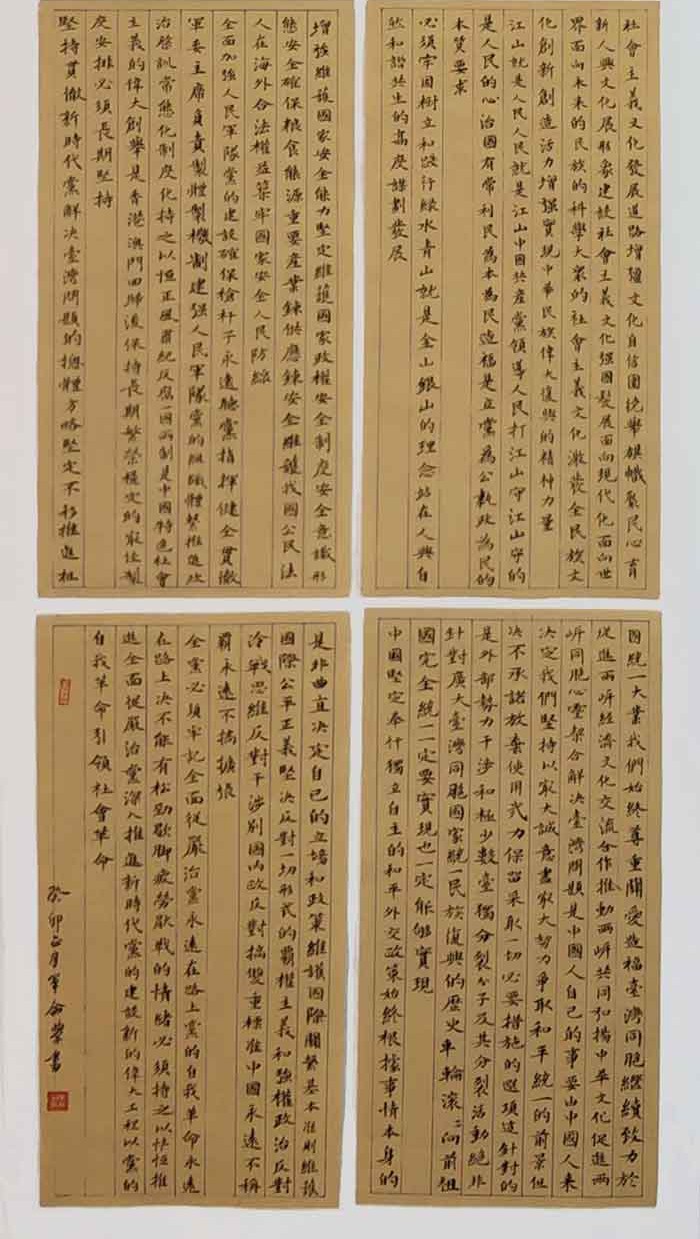 社會主義文化發展道路增强文化自信圍繞舉旗幟聚民心育
新人興文化展形象建設社會主義文化强國發展面向現代化面向世
界面向未來的民族的科學大衆的社會主義文化激發全民族文
化創新創造活力增强實現中華民族偉大復興的精神力量
江山就是人民人民就是江山中國共產黨領導人民打江山守江山守的
是人民的心治國有常利民為本為民造福是立黨為公執政為民的
本質要求
必須牢固樹立和踐行綠水青山就是金山銀山的理念站在人與自
然和諧共生的高度謀劃發展
增强維護國家安全能力堅定維護國家政權安全制度安全意識形
態安全確保粮食能源重要產業鍊供應鍊安全維護我國公民法
人在海外合法權益築牢國家安全人民防綫
全面加強人民軍隊黨的建設確保槍杆子永遠聽黨指揮健全貫徹
軍委主席負責製體製機制建强人民軍隊黨的組織體繫推進政
治整訓常態化制度化持之以恒正風肅紀反腐一國兩制是中國特色社會
主義的偉大創舉是香港澳門回歸後保持長期繁榮穩定的最佳製
度安排必須長期堅持
堅持貫徹新時代黨解决臺灣問題的總體方略堅定不移推進祖
國統一大業我們始終尊重關愛造福臺灣同胞繼續致力於
促進兩岍經濟文化交流合作推動兩岍共同弘揚中華文化促進兩
岍同胞心靈契合解决臺灣問題是中國人自己的事要由中國人來
决定我們堅持以最大誠意盡最大努力爭取和平統一的前景但
决不承諾放棄使用武力保留采取一切必要措施的選項這針對的
是外部勢力干涉和極少數臺獨分裂分子及其分裂活動絕非
針對廣大臺灣同胞國家統一民族復興的歷史車輪滾滾向前祖
國完全統一一定要實現也一定能够實現
中國堅定奉行獨立自主的和平外交政策始終根據事情本身的
是非曲直决定自己的立場和政策維護國際關繫基本准則維護
國際公平正義堅决反對一切形式的霸權主義和強權政治反對
冷戰思維反對干涉別國内政反對搞雙重標准中國永遠不稱
霸永遠不搞擴張
全黨必須牢記全面從嚴治黨永遠在路上黨的自我革命永遠
在路上决不能有松勁歇脚疲勞厭戰的情緒必須持之以恒推
進全面從嚴治黨深入推進新時代黨的建設新的偉大工程以黨的
自我革命引領社會革命
癸卯正月軍命榮書